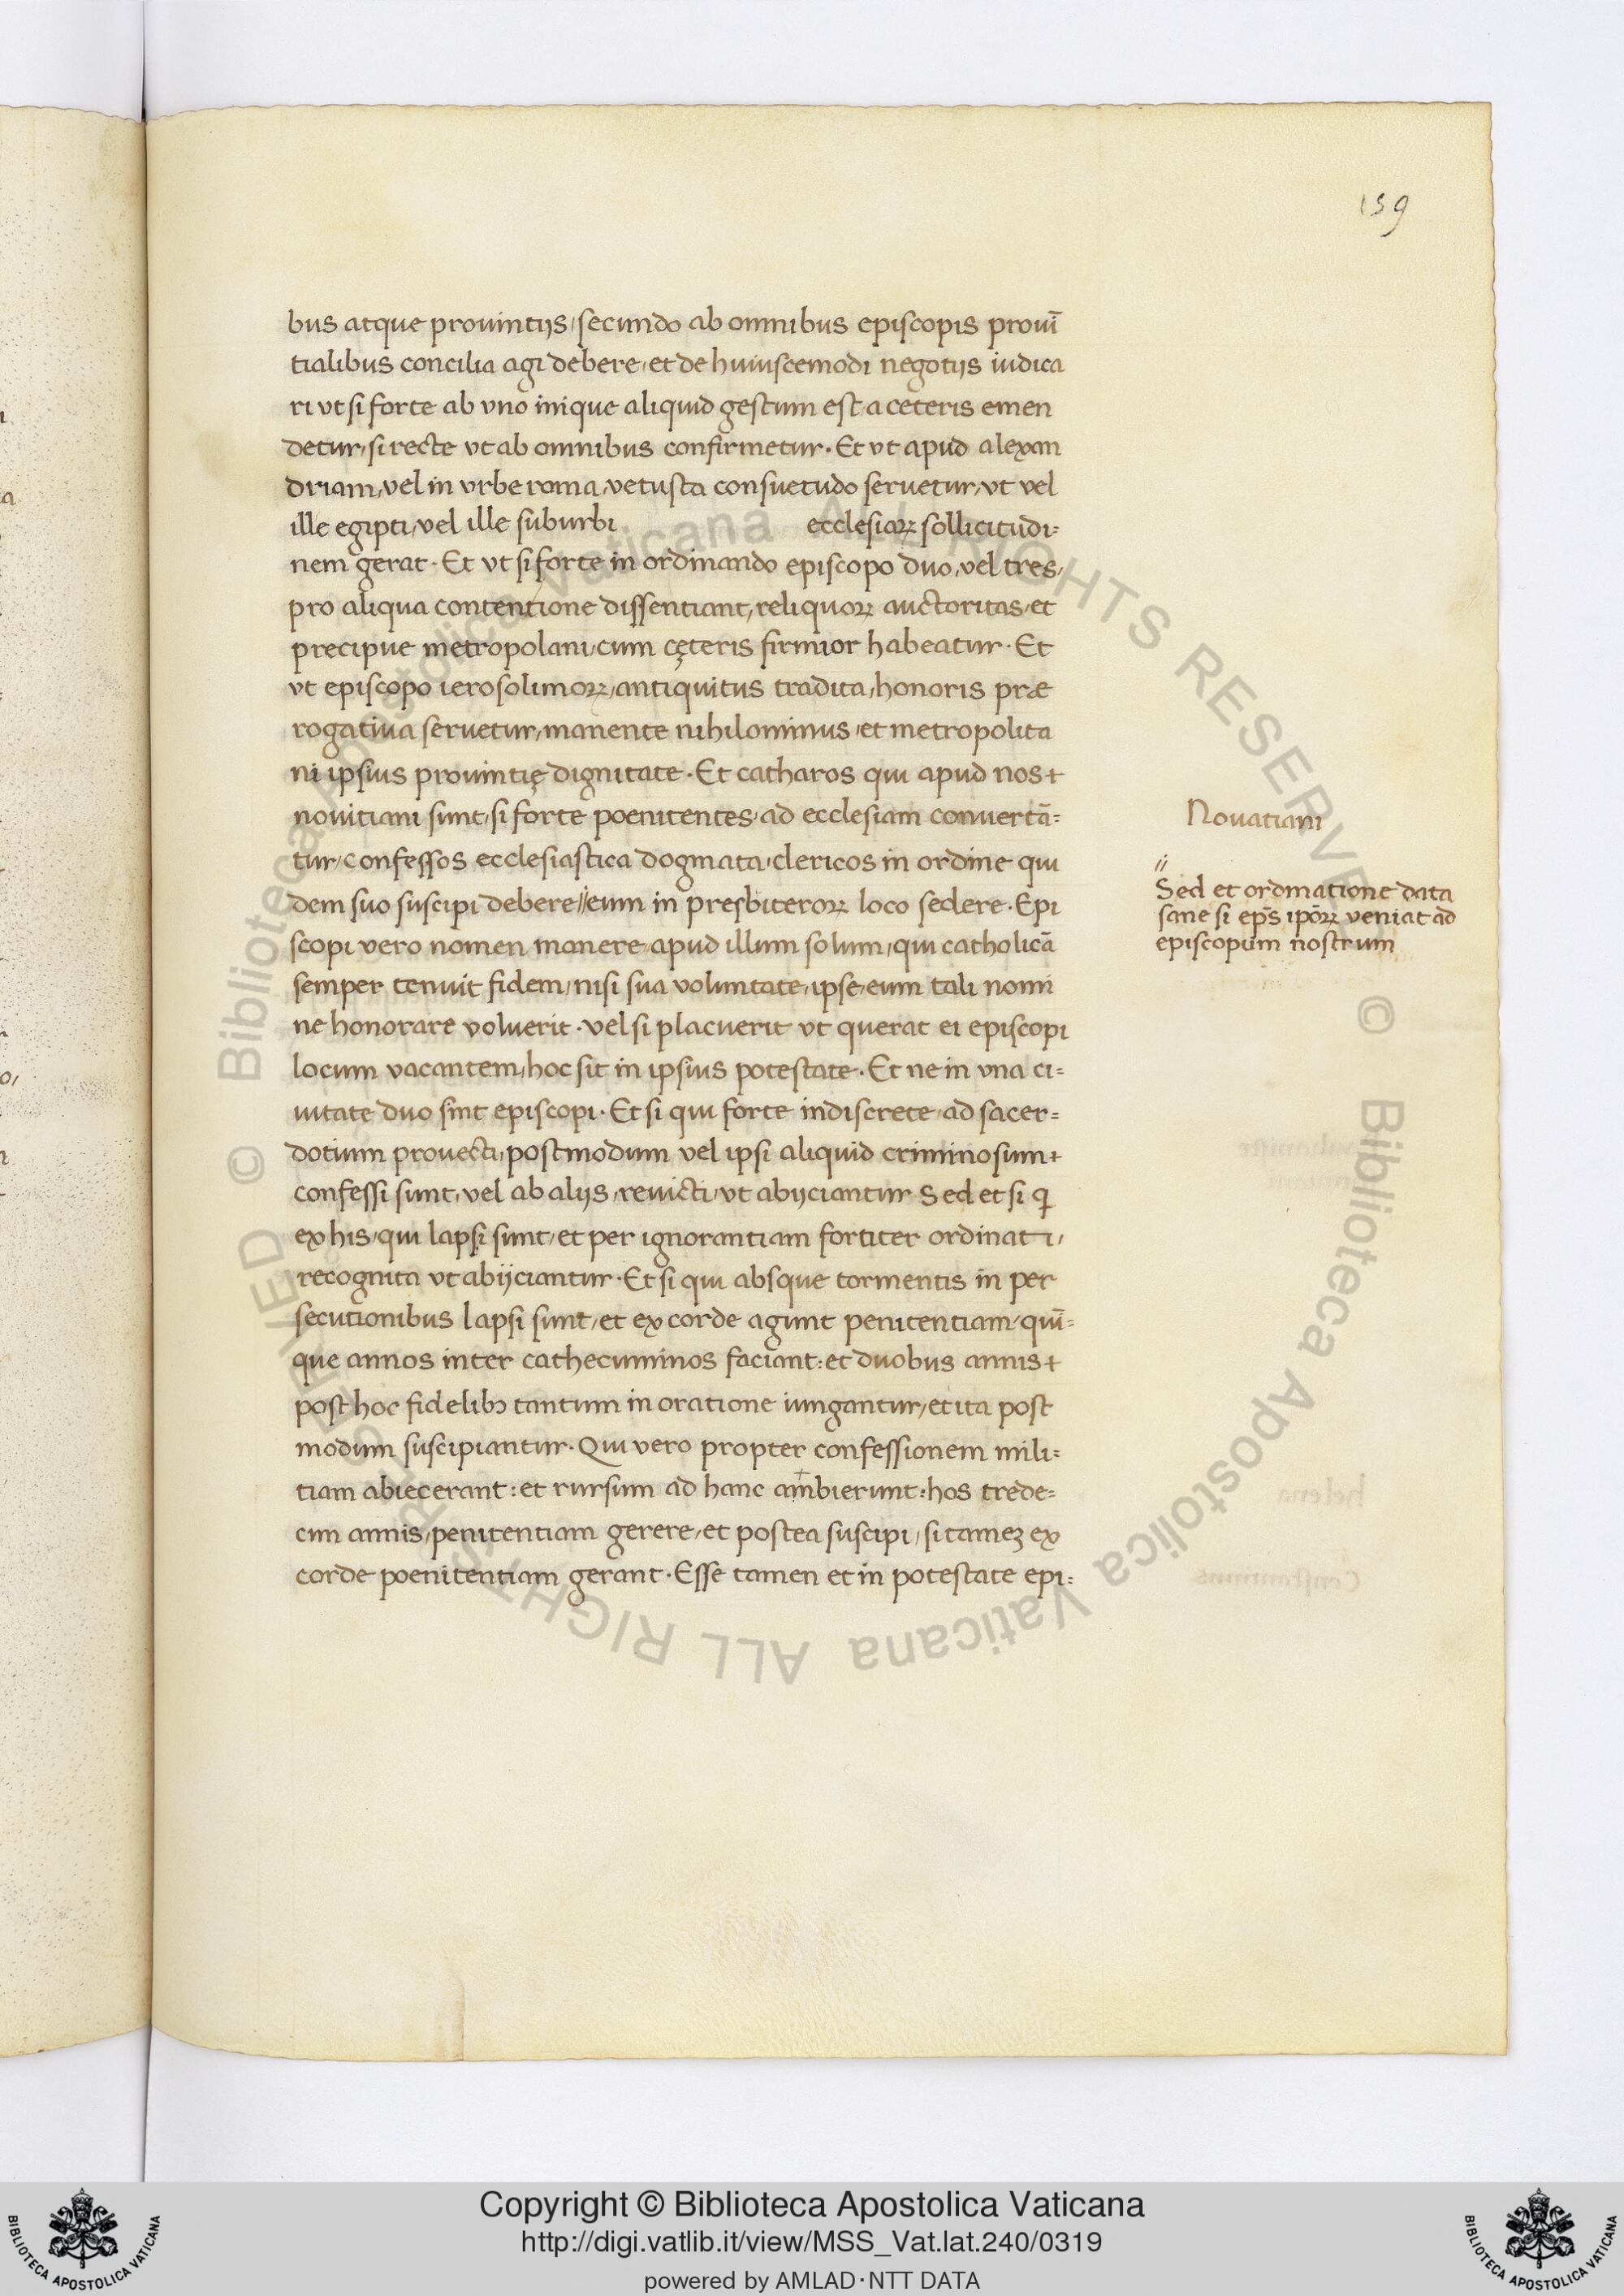 159
bus atque prouintijs, secundo ab omnibus episcopis prouī
tialibus concilia agi debere, et de huiuscemodi negotijs iudica
ri vt si forte ab vno inique aliquid gestum est, a ceteris emen
detur, si recte vt ab omnibus confirmetur. Et vt apud alexan
driam, vel in vrbe roma, vetusta consuetudo seruetur, vt vel
ille egipti, vel ille suburbi ecclesiaꝝ sollicitudi=
nem gerat. Et vt si forte in ordinando episcopo duo, vel tres,
pro aliqua contentione dissentiant, reliquoꝝ auctoritas, et
precipue metropolani, cum cęteris firmior habeatur. Et
vt episcopo ierosolimoꝝ, antiquitus tradita, honoris præ
rogatiua seruetur, manente nihilominus, et metropolita
ni ipsius prouintię dignitate. Et catharos qui apud nos+
nouitiani sunt, si forte poenitentes, ad ecclesiam conuertā=
tur, confessos ecclesiastica dogmata, clericos in ordine qui
dem suo suscipi debere,//eum in presbiteroꝝ loco sedere. Epi
scopi vero nomen manere, apud illum solum, qui catholicā
semper tenuit fidem, nisi sua voluntate, ipse, eum tali nomi
ne honorare voluerit. vel si placuerit vt querat ei episcopi
locum vacantem, hoc sit in ipsius potestate. Et ne in vna ci=
uitate duo sint episcopi. Et si qui forte indiscrete, ad sacer=
dotium prouecti, postmodum vel ipsi aliquid criminosum+
confessi sunt, vel ab alijs, reuicti, vt abijciantur Sed et si q̄
ex his, qui lapsi sunt, et per ignorantiam fortiter ordinati,
recognita vt abijciantur. Et si qui absque tormentis in per
secutionibus lapsi sunt, et ex corde agunt penitentiam, quī=
que annos inter cathecuminos faciant: et duobus annis+
post hoc fidelibꝫ tantum in oratione iungantur, et ita post
modum suscipiantur. Qui vero propter confessionem mili=
tiam abiecerant: et rursum ad hanc ambierunt: hos trede=
cim annis, penitentiam gerere, et postea suscipi, si tameꝫ ex
corde poenitentiam gerant. Esse tamen et in potestate epi=
Nouatiani
//
Sed et ordinatione data
sane si ep̄s ip̄oꝝ veniat ad
episcopum nostrum
© Biblioteca Apostolica Vaticana ALL RIGHTS RESERVED
© Biblioteca Apostolica Vaticana ALL RIGHTS RESERVED
BIBLIOTECA APOSTOLICA VATICANA
Copyright © Biblioteca Apostolica Vaticana
http://digi.vatlib.it/view/MSS_Vat.lat.240/0319
powered by AMLAD·NTT DATA
BIBLIOTECA APOSTOLICA VATICANA